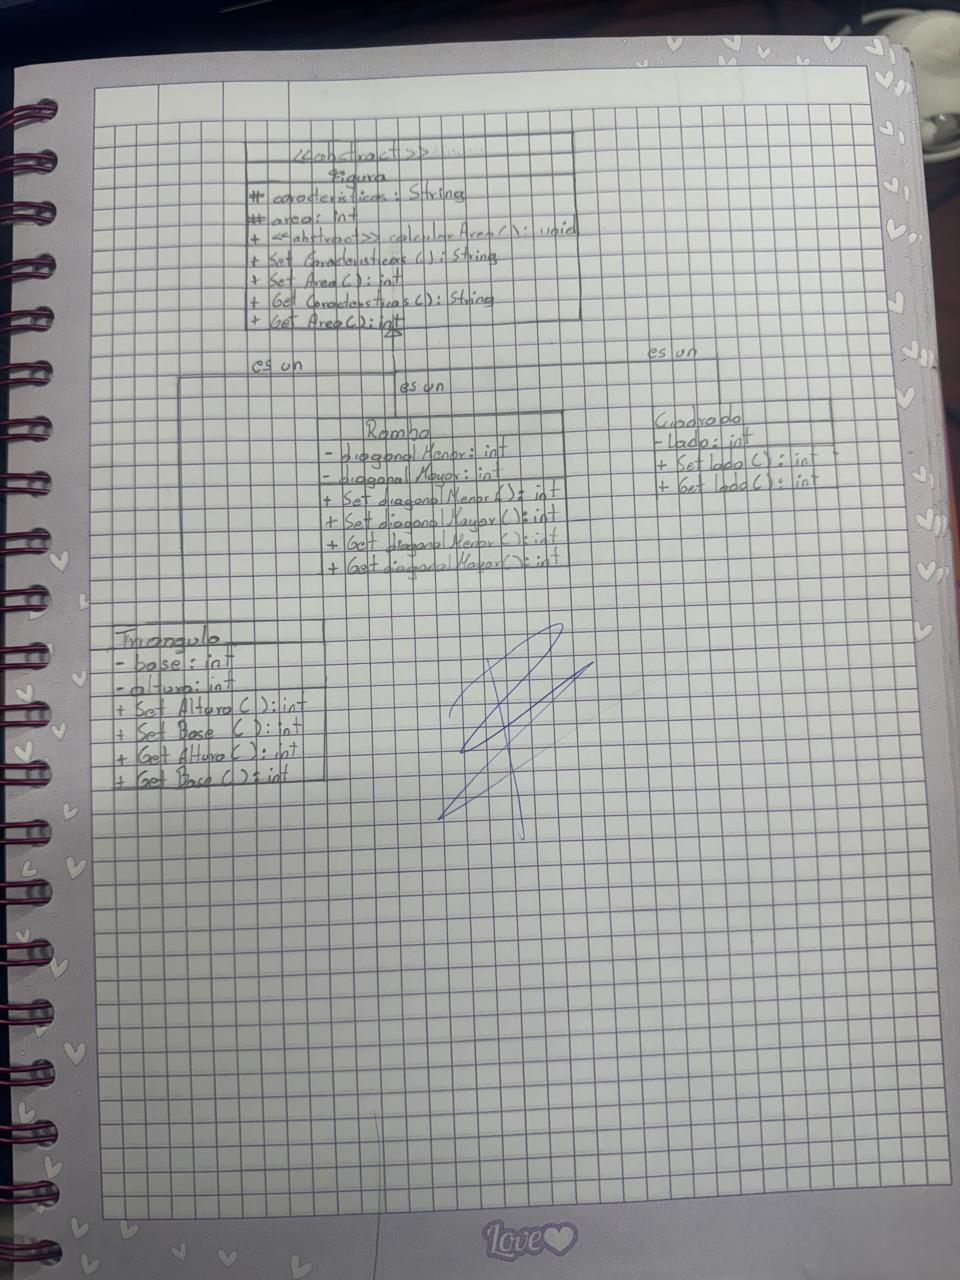 <<abstract>>
Figura
# caracteristicas: String
# area: int
+ <<abstract>> calcularArea(): void
+ Set Caracteristicas(): String
+ Set Area(): int
+ Get Caracteristicas(): String
+ Get Area(): int
es un
es un
es un
Rombo
- diagonal Menor: int
- diagonal Mayor: int
+ Set diagonal Menor(): int
+ Set diagonal Mayor(): int
+ Get diagonal Menor(): int
+ Get diagonal Mayor(): int
Cuadrado
- Lado: int
+ Set lado(): int
+ Get lado(): int
Triangulo
- base: int
- altura: int
+ Set Altura(): int
+ Set Base(): int
+ Get Altura(): int
+ Get Base(): int
Love